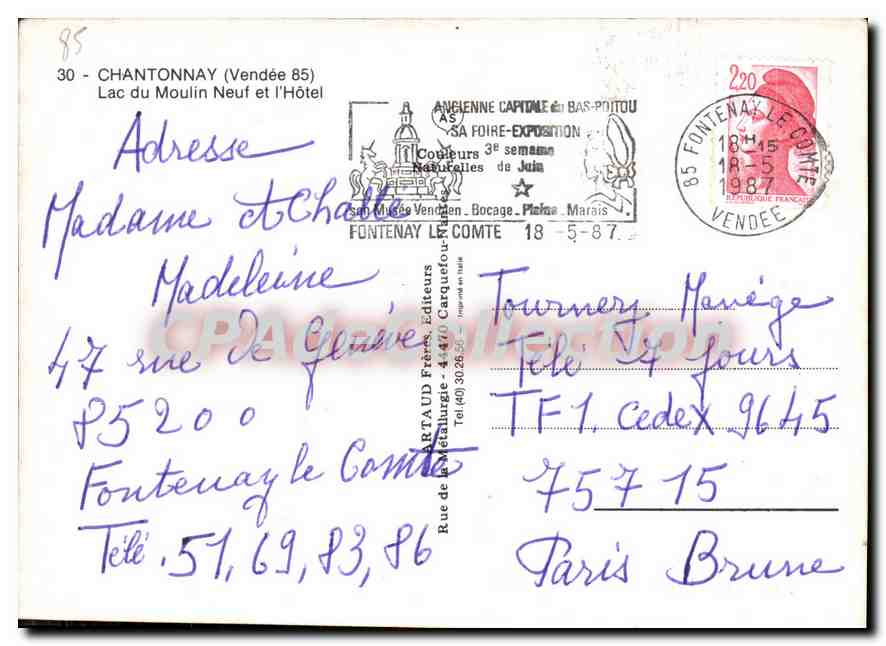 85
30 - CHANTONNAY (Vendée 85)
Lac du Moulin Neuf et l'Hôtel
ANCIENNE CAPITALE du BAS-POITOU
SA FOIRE-EXPOSITION
3e semaine
de Juin
Couleurs
Naturelles
son Musée Vendéen - Bocage - Plaine - Marais
FONTENAY LE COMTE 18 -5-87
85 FONTENAY LE COMTE
18H15
18-5
1987
VENDEE
2,20
REPUBLIQUE FRANÇAISE
Adresse
Madame
Madeleine
47 rue de Genève
85200
Fontenay le Comte
Télé. 51,69,83,86
ARTAUD Frères, Editeurs
Rue de la Métallurgie - 44470 Carquefou-Nantes
Tel.(40) 30.26.56 - Imprimé en Italie
Tournez Manège
Télé 7 Jours
TF1. Cedex 9645
75715
Paris Brune
CPA de Collection